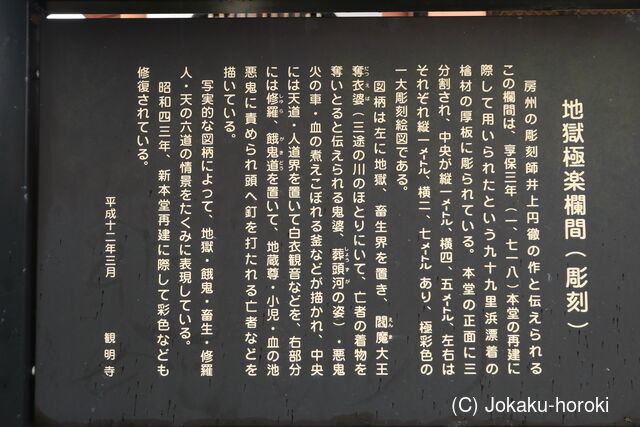 地獄極楽欄間（彫刻）
房州の彫刻師井上円徹の作と伝えられる
この欄間は、享保三年（一、七一八）本堂の再建に
際して用いられたという九十九里浜漂着の
槍材の厚板に彫られている。本堂の正面に三
分割され、中央が縦一メートル、横四、五メートル、左右は
それぞれ縦一メートル、横二、七メートルあり、極彩色の
一大彫刻絵図である。
図柄は左に地獄、畜生界を置き、閻魔大王
奪衣婆（三途の川のほとりにいて、亡者の着物を
奪いとると伝えられる鬼婆、葬頭河の姿）・悪鬼
火の車・血の煮えこぼれる釜などが描かれ、中央
には天道・人道界を置いて白衣観音などを、右部分
には修羅、餓鬼道を置いて、地蔵尊・小児・血の池
悪鬼に責められ頭へ釘を打たれる亡者などを
描いている。
写実的な図柄によって、地獄・餓鬼・畜生・修羅
人・天の六道の情景をたくみに表現している。
昭和四三年、新本堂再建に際して彩色なども
修復されている。
平成十二年三月　観明寺
(C) Jokaku-horoki